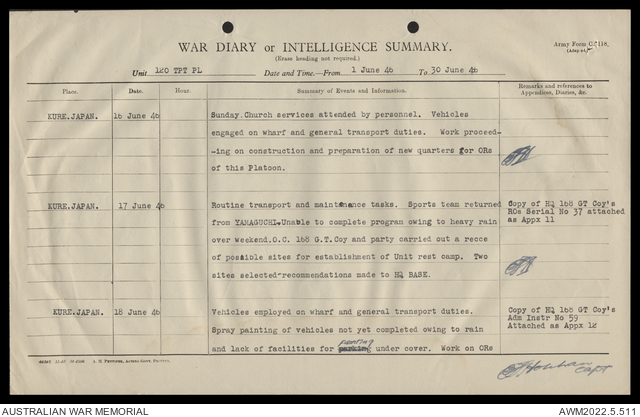 WAR DIARY or INTELLIGENCE SUMMARY.
(Erase heading not required.)
Army Form C.2118.
Unit 120 TPT PL Date and Time.—From 1 June 46 To 30 June 46
Place. Date. Hour. Summary of Events and Information. Remarks and references to Appendices, Diaries, &c.
KURE.JAPAN. 16 June 46 Sunday. Church services attended by personnel. Vehicles
engaged on wharf and general transport duties. Work proceed-
-ing on construction and preparation of new quarters for ORs
of this Platoon.
KURE.JAPAN. 17 June 46 Routine transport and maintenance tasks. Sports team returned Copy of HQ 168 GT Coy's
from YAMAGUCHI. Unable to complete program owing to heavy rain ROs Serial No 37 attached
over weekend. O.C. 168 G.T.Coy and party carried out a recce as Appx 11
of possible sites for establishment of Unit rest camp. Two
sites selected-recommendations made to HQ BASE.
KURE.JAPAN. 18 June 46 Vehicles employed on wharf and general transport duties. Copy of HQ 168 GT Coy's
Spray painting of vehicles not yet completed owing to rain Adm Instr No 59
Attached as Appx 12
and lack of facilities for parking under cover. Work on ORs
Capt
AUSTRALIAN WAR MEMORIAL AWM2022.5.511